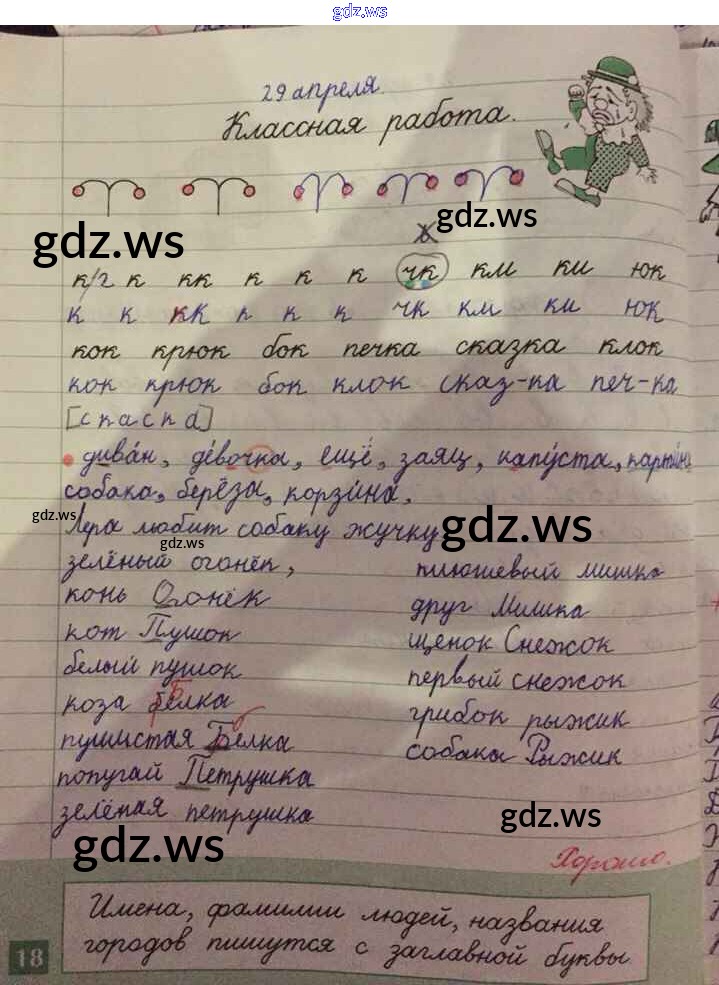 gdz.ws
29 апреля.
Классная работа.
gdz.ws
gdz.ws
ь
к/г к кк к к к чк км ки юк
к к кк к к к чк км ки юк
кок крюк бок печка сказка клок
кок крюк бок клок сказ-ка печ-ка
[спаска]
диван, девочка, ещё, заяц, капуста, картина
собака, берёза, корзина.
gdz.ws
gdz.ws
Лера любит собаку жучку
gdz.ws
зелёный огонёк, плюшевый мишка
конь Огонёк друг Мишка
кот Пушок щенок Снежок
белый пушок первый снежок
коза Белка грибок рыжик
пушистая белка собака Рыжик
попугай Петрушка
зелёная петрушка
gdz.ws
gdz.ws
Хорошо.
Имена, фамилии людей, названия
городов пишутся с заглавной буквы
18